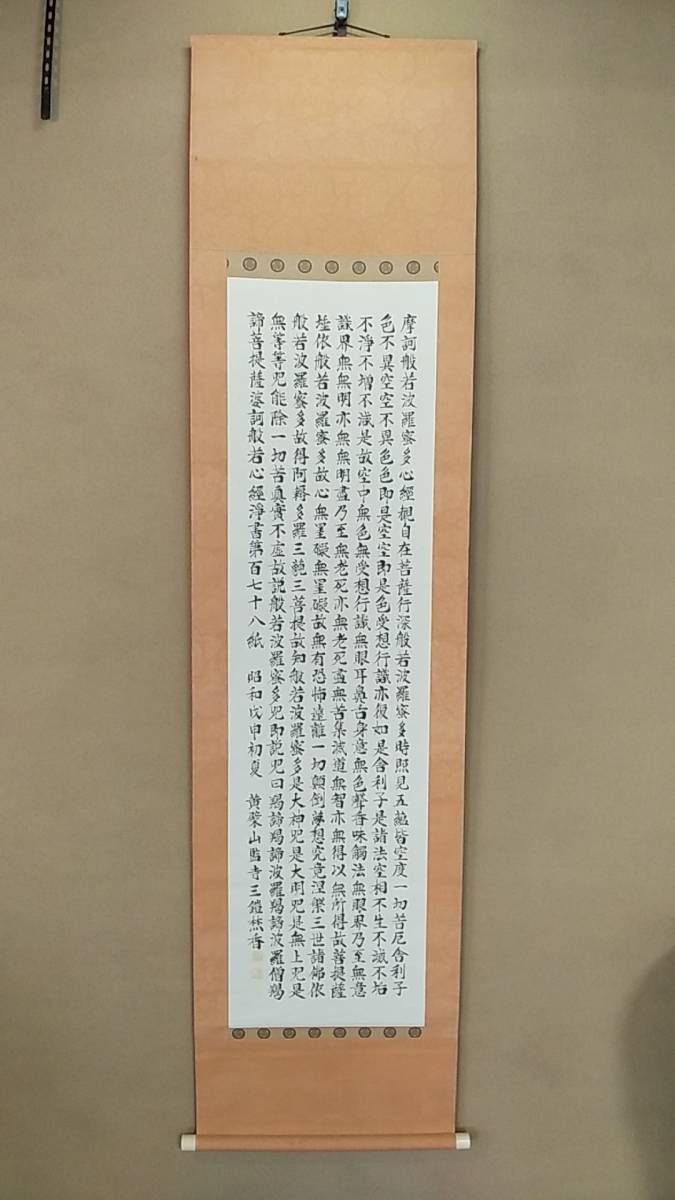 摩訶般若波羅蜜多心經觀自在菩薩行深般若波羅蜜多時照見五蘊皆空度一切苦厄舍利子
色不異空空不異色色即是空空即是色受想行識亦復如是舍利子是諸法空相不生不滅不垢
不淨不增不減是故空中無色無受想行識無眼耳鼻舌身意無色聲香味觸法無眼界乃至無意
識界無無明亦無無明盡乃至無老死亦無老死盡無苦集滅道無智亦無得以無所得故菩提薩
埵依般若波羅蜜多故心無罣礙無罣礙故無有恐怖遠離一切顛倒夢想究竟涅槃三世諸佛依
般若波羅蜜多故得阿耨多羅三藐三菩提故知般若波羅蜜多是大神咒是大明咒是無上咒是
無等等咒能除一切苦真實不虛故説般若波羅蜜多咒即説咒曰羯諦羯諦波羅羯諦波羅僧羯
諦菩提薩婆訶般若心經淨書第百七十八紙 昭和戊申初夏 黄檗山監寺三鎧焚香